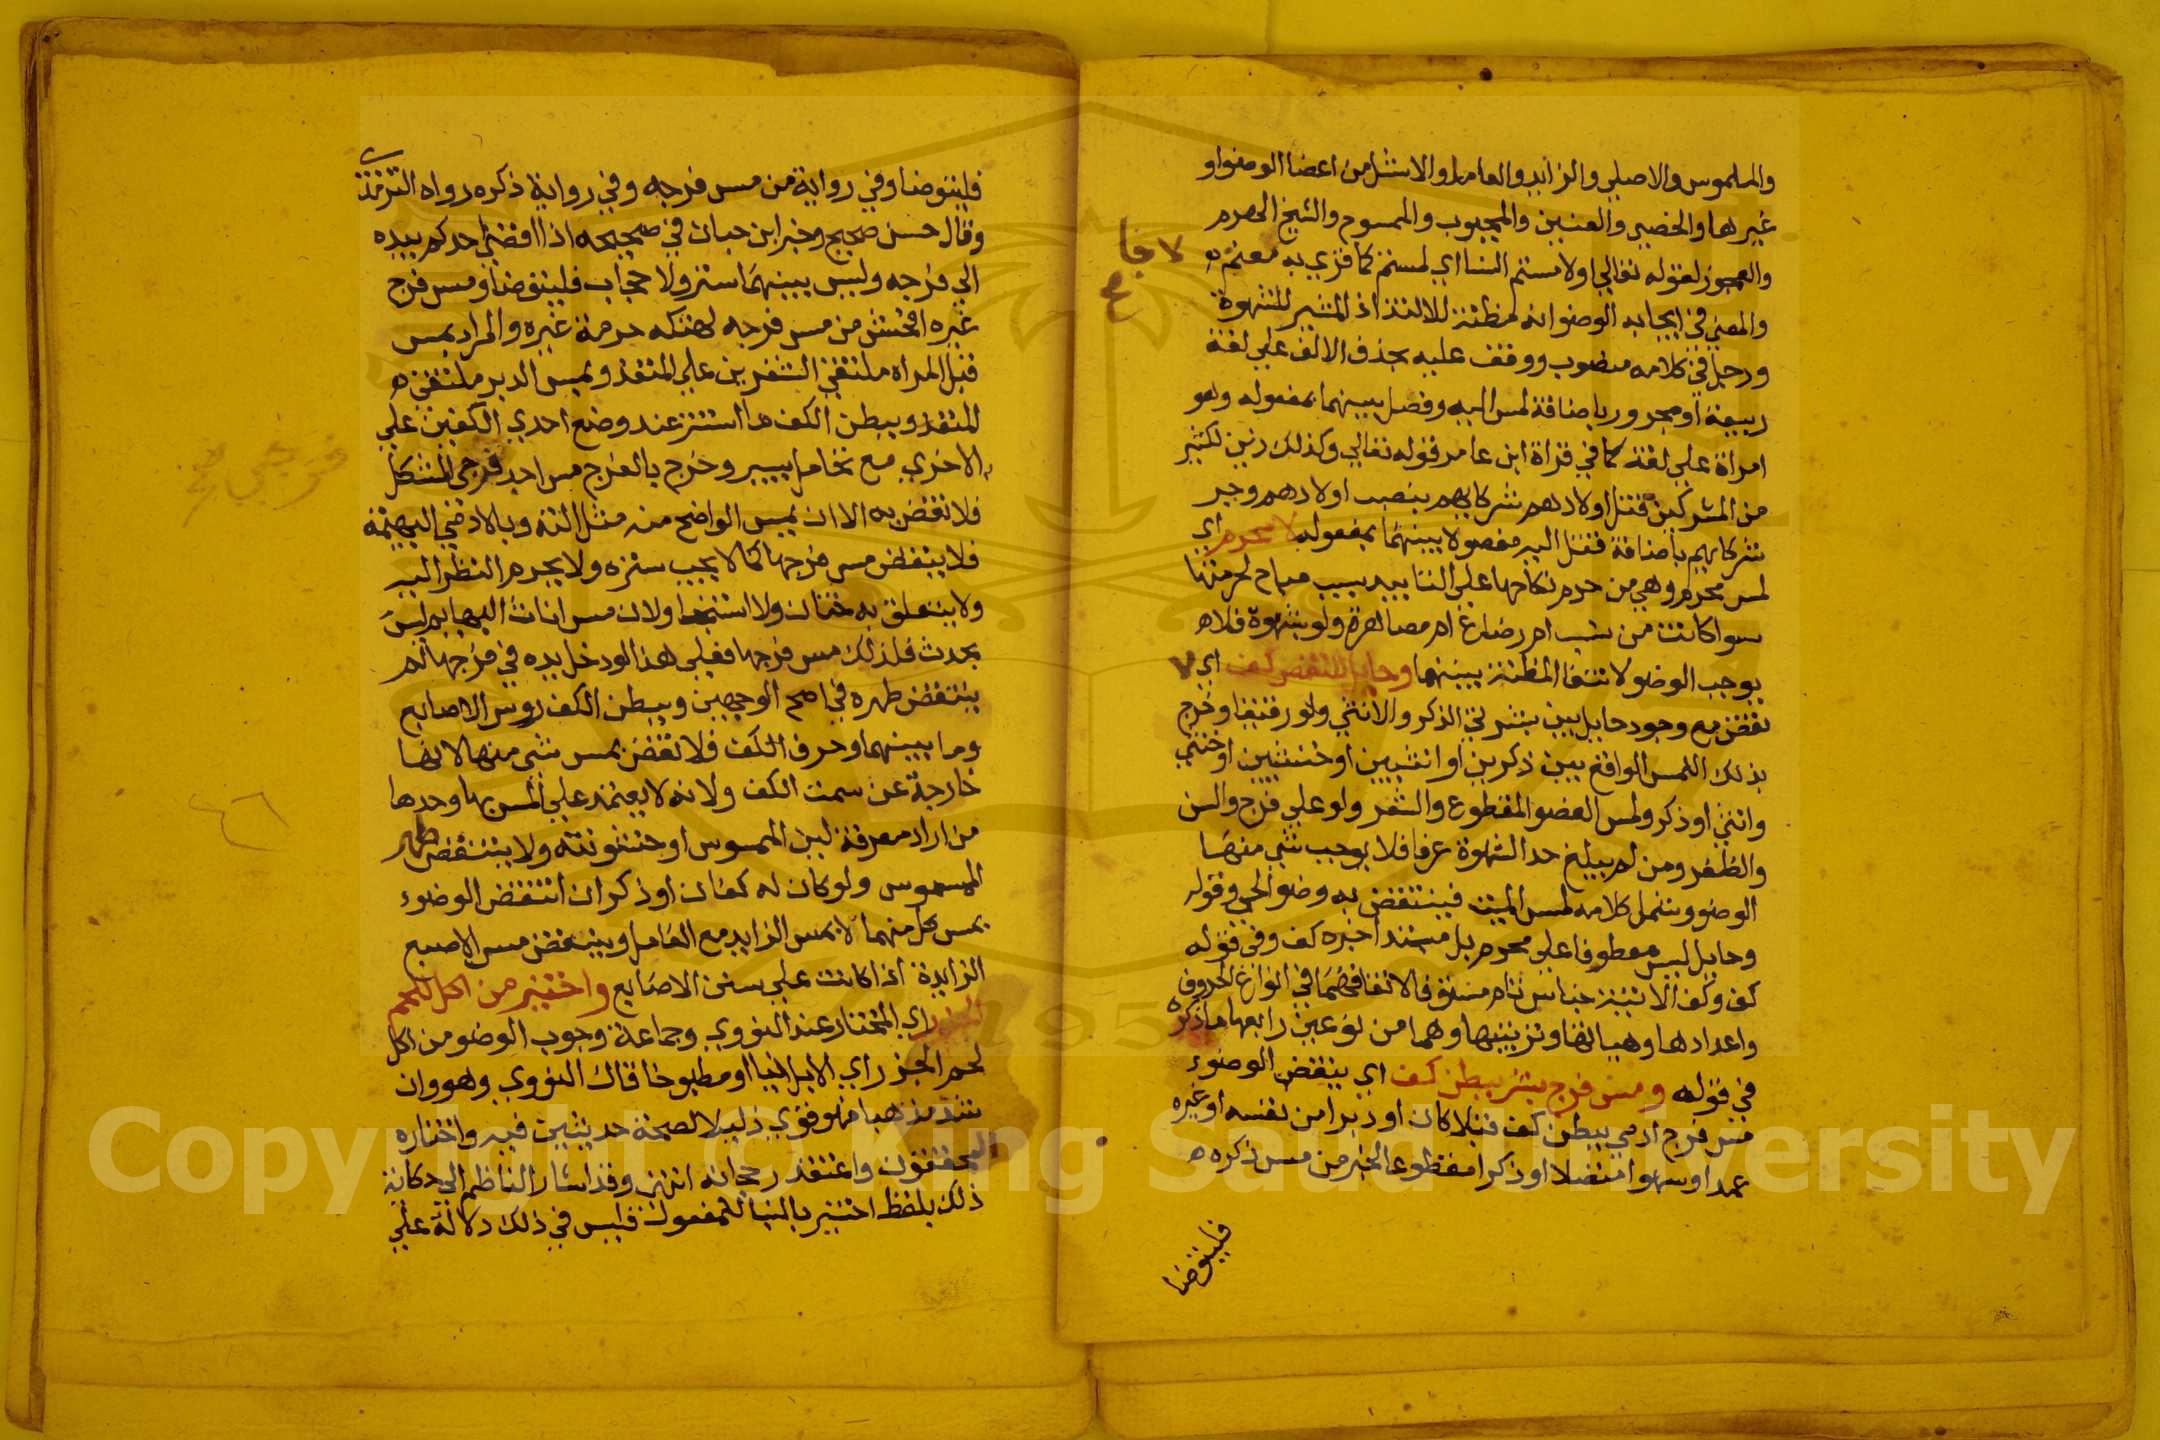 والملموس والاصلي والزايد والعامل والاشل من اعضا الوضو او
غيرها والخصي والعنين والمجبوب والممسوح والشيخ الهرم
والعجوز لقوله تعالي او لامستم النسا اي لمستم كما قري به
والمعني في ايجابه الوضو انه مظنة للالتذاذ المثير للشهوة
ورجل في كلامه منصوب ووقف عليه بحذف الالف علي لغة
ربيعة او مجرور باضافة لمس اليه وفصل بينهما بمفعوله وهو
امراة علي لغة كما في قراة ابن عامر قوله تعالي وكذلك زين لكثير
من المشركين قتل اولادهم شركايهم بنصب اولادهم وجر
شركايهم باضافة قتل اليه مفصولا بينهما بمفعوله لا محرم اي
لمس محرم وهي من حرم نكاحها علي التابيد بسبب مباح لحرمتها
سوا كانت من نسب ام رضاع ام مصاهرة ولو بشهوة فلا
يوجب الوضو لانتفا المظنة بينهما وحايل للنقض كف اي لا
نقض مع وجود حايل بين بشرتي الذكر والانثي ولو رقيقا وخرج
بذلك اللمس الواقع بين ذكرين او انثيين او خنثيين او خنثي
وانثي او ذكر ولمس العضو المقطوع والشعر ولو علي فرج والسن
والظفر ومن لم يبلغ حد الشهوة عرفا فلا يوجب شي منها
الوضو وشمل كلامه لمس الميت فينتقض به وضو الحي وقوله
وحايل ليس معطوفا علي محرم بل مبتدا خبره كف وفي قوله
كف وكف الاتية جناس تام مستوفي لاتفاقهما في انواع الحروف
واعدادها وهياتها وترتيبها وهما من نوعين رابعها ما ذكره
في قوله ومس فرج بشر ببطن كف اي ينقض الوضوء
مس فرج ادمي ببطن كف قبلا كان او دبرا من نفسه او غيره
عمدا او سهوا متصلا او ذكرا مقطوعا لخبر من مس ذكره
فليتوضا
فليتوضا وفي رواية من مس فرجه وفي رواية ذكره رواه الترمذي
وقال حسن صحيح وخبر ابن حبان في صحيحه اذا افضي احدكم بيده
الي فرجه وليس بينهما ستر ولا حجاب فليتوضا ومس فرج
غيره افحش من مس فرجه لهتكه حرمة غيره والمراد بمس
قبل المراه ملتقي الشفرين علي المنفذ وبمس الدبر ملتقي
المنفذ وببطن الكف ما استتر عند وضع احدي الكفين علي
الاخري مع تحامل يسير وخرج بالفرج مس احد فرجي المشكل
فلا نقض به الا ان يمس الواضح منه مثل اله وبالادمي البهيمة
فلا ينتقض مس فرجها كما لا يجب ستره ولا يحرم النظر اليه
ولا يتعلق به ختان ولا استنجا ولان مس اناث البهايم ليس
بحدث فلذلك مس فرجها فعلي هذا لو دخل يده في فرجها لم
ينتقض طهره في اصح الوجهين وببطن الكف روس الاصابع
وما بينهما وحرف الكف فلا نقض بمس شي منها لانها
خارجة عن سمت الكف ولانه لا يعتمد علي المس بها وحدها
من اراد معرفة لين الملموس او خشونته ولا ينتقض طهر
الممسوس ولو كان له كفان او ذكران انتقض الوضوء
بمس كل منهما لا بمس الزايد مع العامل وينتقض مس الاصبع
الزايدة اذا كانت علي سنن الاصابع واختير من اكل للحم
الجزر اي المختار عند النووي وجماعة وجوب الوضو من اكل
لحم الجزر اي الابل نيا او مطبوخا قال النووي وهو وان
شذ مذهبا فهو قوي دليلا لصحة حديثين فيه واختاره
المحققون واعتقد رجحانه انتهي وقد اشار الناظم الي حكاية
ذلك بلفظ اختير بالبنا للمفعول فليس في ذلك دلالة علي
فرجي صح
Copyright © King Saud University
1957